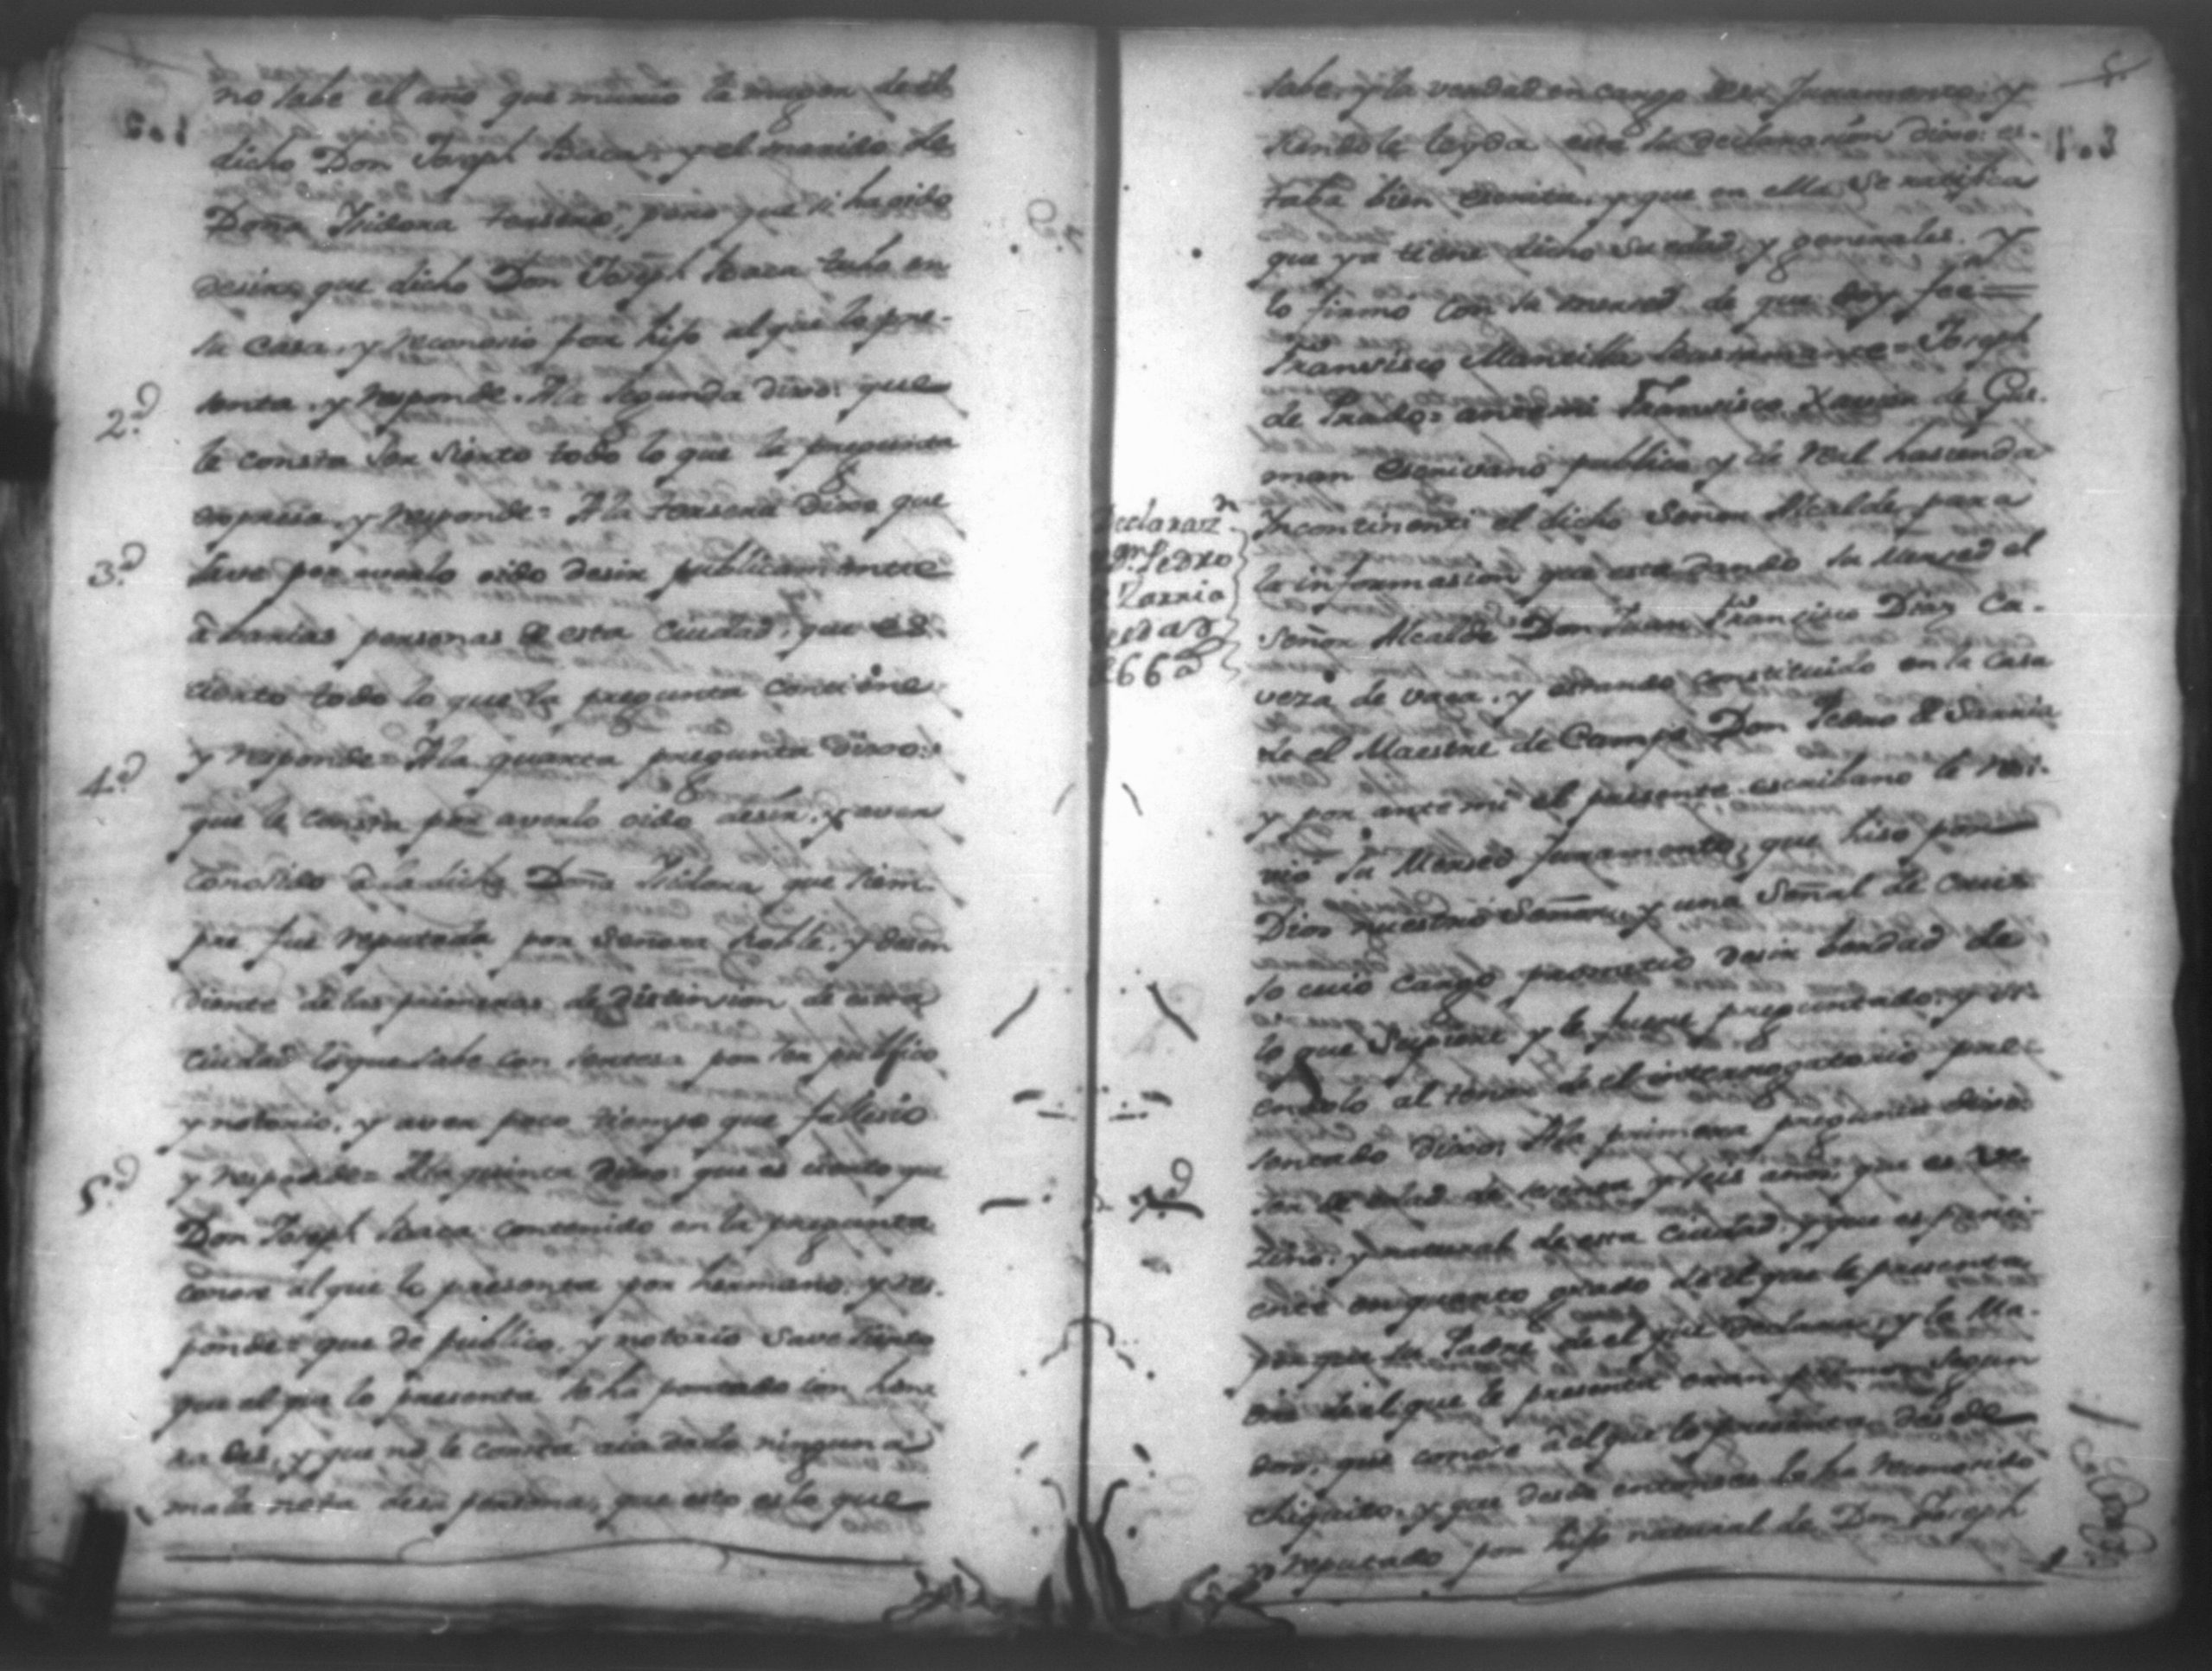 no sabe el año que murio la muger de el
dicho Don Joseph Baca, y el marido de
Doña Isidora tersero, pero que si ha oido
desir, que dicho Don Joseph Baca tubo en
su casa, y reconosio por hijo al que le pre-
senta, y responde. A la segunda dixo: que
2.ª
le consta ser sierto todo lo que la pregunta
expresa, y responde = A la tersera dixo que
3.ª
save por averlo oido desir publicamente
â barias personas de esta Ciudad, que es
cierto todo lo que la pregunta contiene
y responde = A la quarta pregunta dixo:
4.ª
que le consta por averlo oido desir, y aver
conosido â la dicha Doña Isidora que siem-
pre fue reputada por Señora noble, y desen
diente de las primeras de distinsion de esta
Ciudad lo que sabe con serteza por ser publico
y notorio, y aver poco tiempo que fallesio
y responde = A la quinta dixo: que es cierto que
5.ª
Don Joseph Baca contenido en la pregunta
conose al que le presenta por hermano, y res-
ponde = que de publico, y notorio save sierto
que el que lo presenta se ha portado con hon
ra des, y que no le consta aia dado ninguna
mala nota de su persona, que esto es lo que
sabe, y la verdad en cargo de su Juramento, y
siendole leyda esta su declarasion dixo: es-
taba bien escrita, y que en ella se ratifica
que ya tiene dicho su edad, y generales, y
lo firmó con su mersed de que doy fee =
Fransisco Mansilla Bustamante = Joseph
de Prado = ante mi Fransisco Xavier de Gus-
man escrivano publico y de Real hasienda
Declarazn
Pedro
Zarria
edad
66 a
Incontinenti el dicho Señor Alcalde para
la informasion que esta dando su Mersed el
Señor Alcalde Don Juan Francisco Diaz Ca-
veza de vaca, y estando constituido en la casa
de el Maestre de Campo Don Pedro de Sarria
y por ante mi el presente escribano le resi-
vió su Mersed juramento, que hiso por
Dios nuestro Señor, y una Señal de Cruz
so cuio cargo prometió desir berdad de
lo que Supiere y le fuere preguntado, y si-
endolo al tenor de el interrogatorio pre-
sentado dixo, A la primera pregunta dixo
1.ª
ser de edad de sesenta y seis años que es ve-
zino, y natural de esta Ciudad, y que es parie-
ente en quarto grado de el que le presenta
porque su Padre de el que declara, y la Ma-
dre de el que le presenta eran primos segun
dos, que conose â el que lo presenta desde
chiquito, y que desde entonses lo ha reconosido
y reputado por hijo natural de Don Joseph